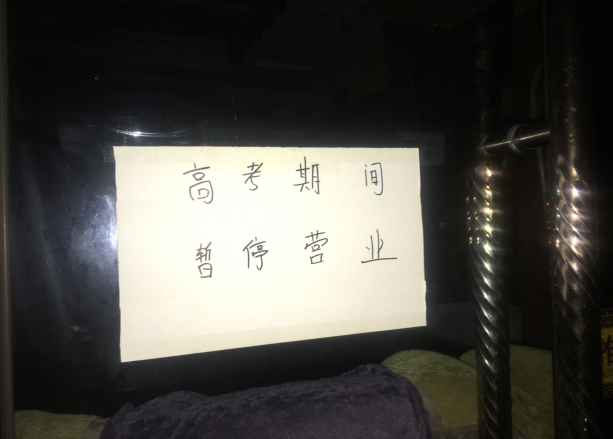 高考期间
暂停营业